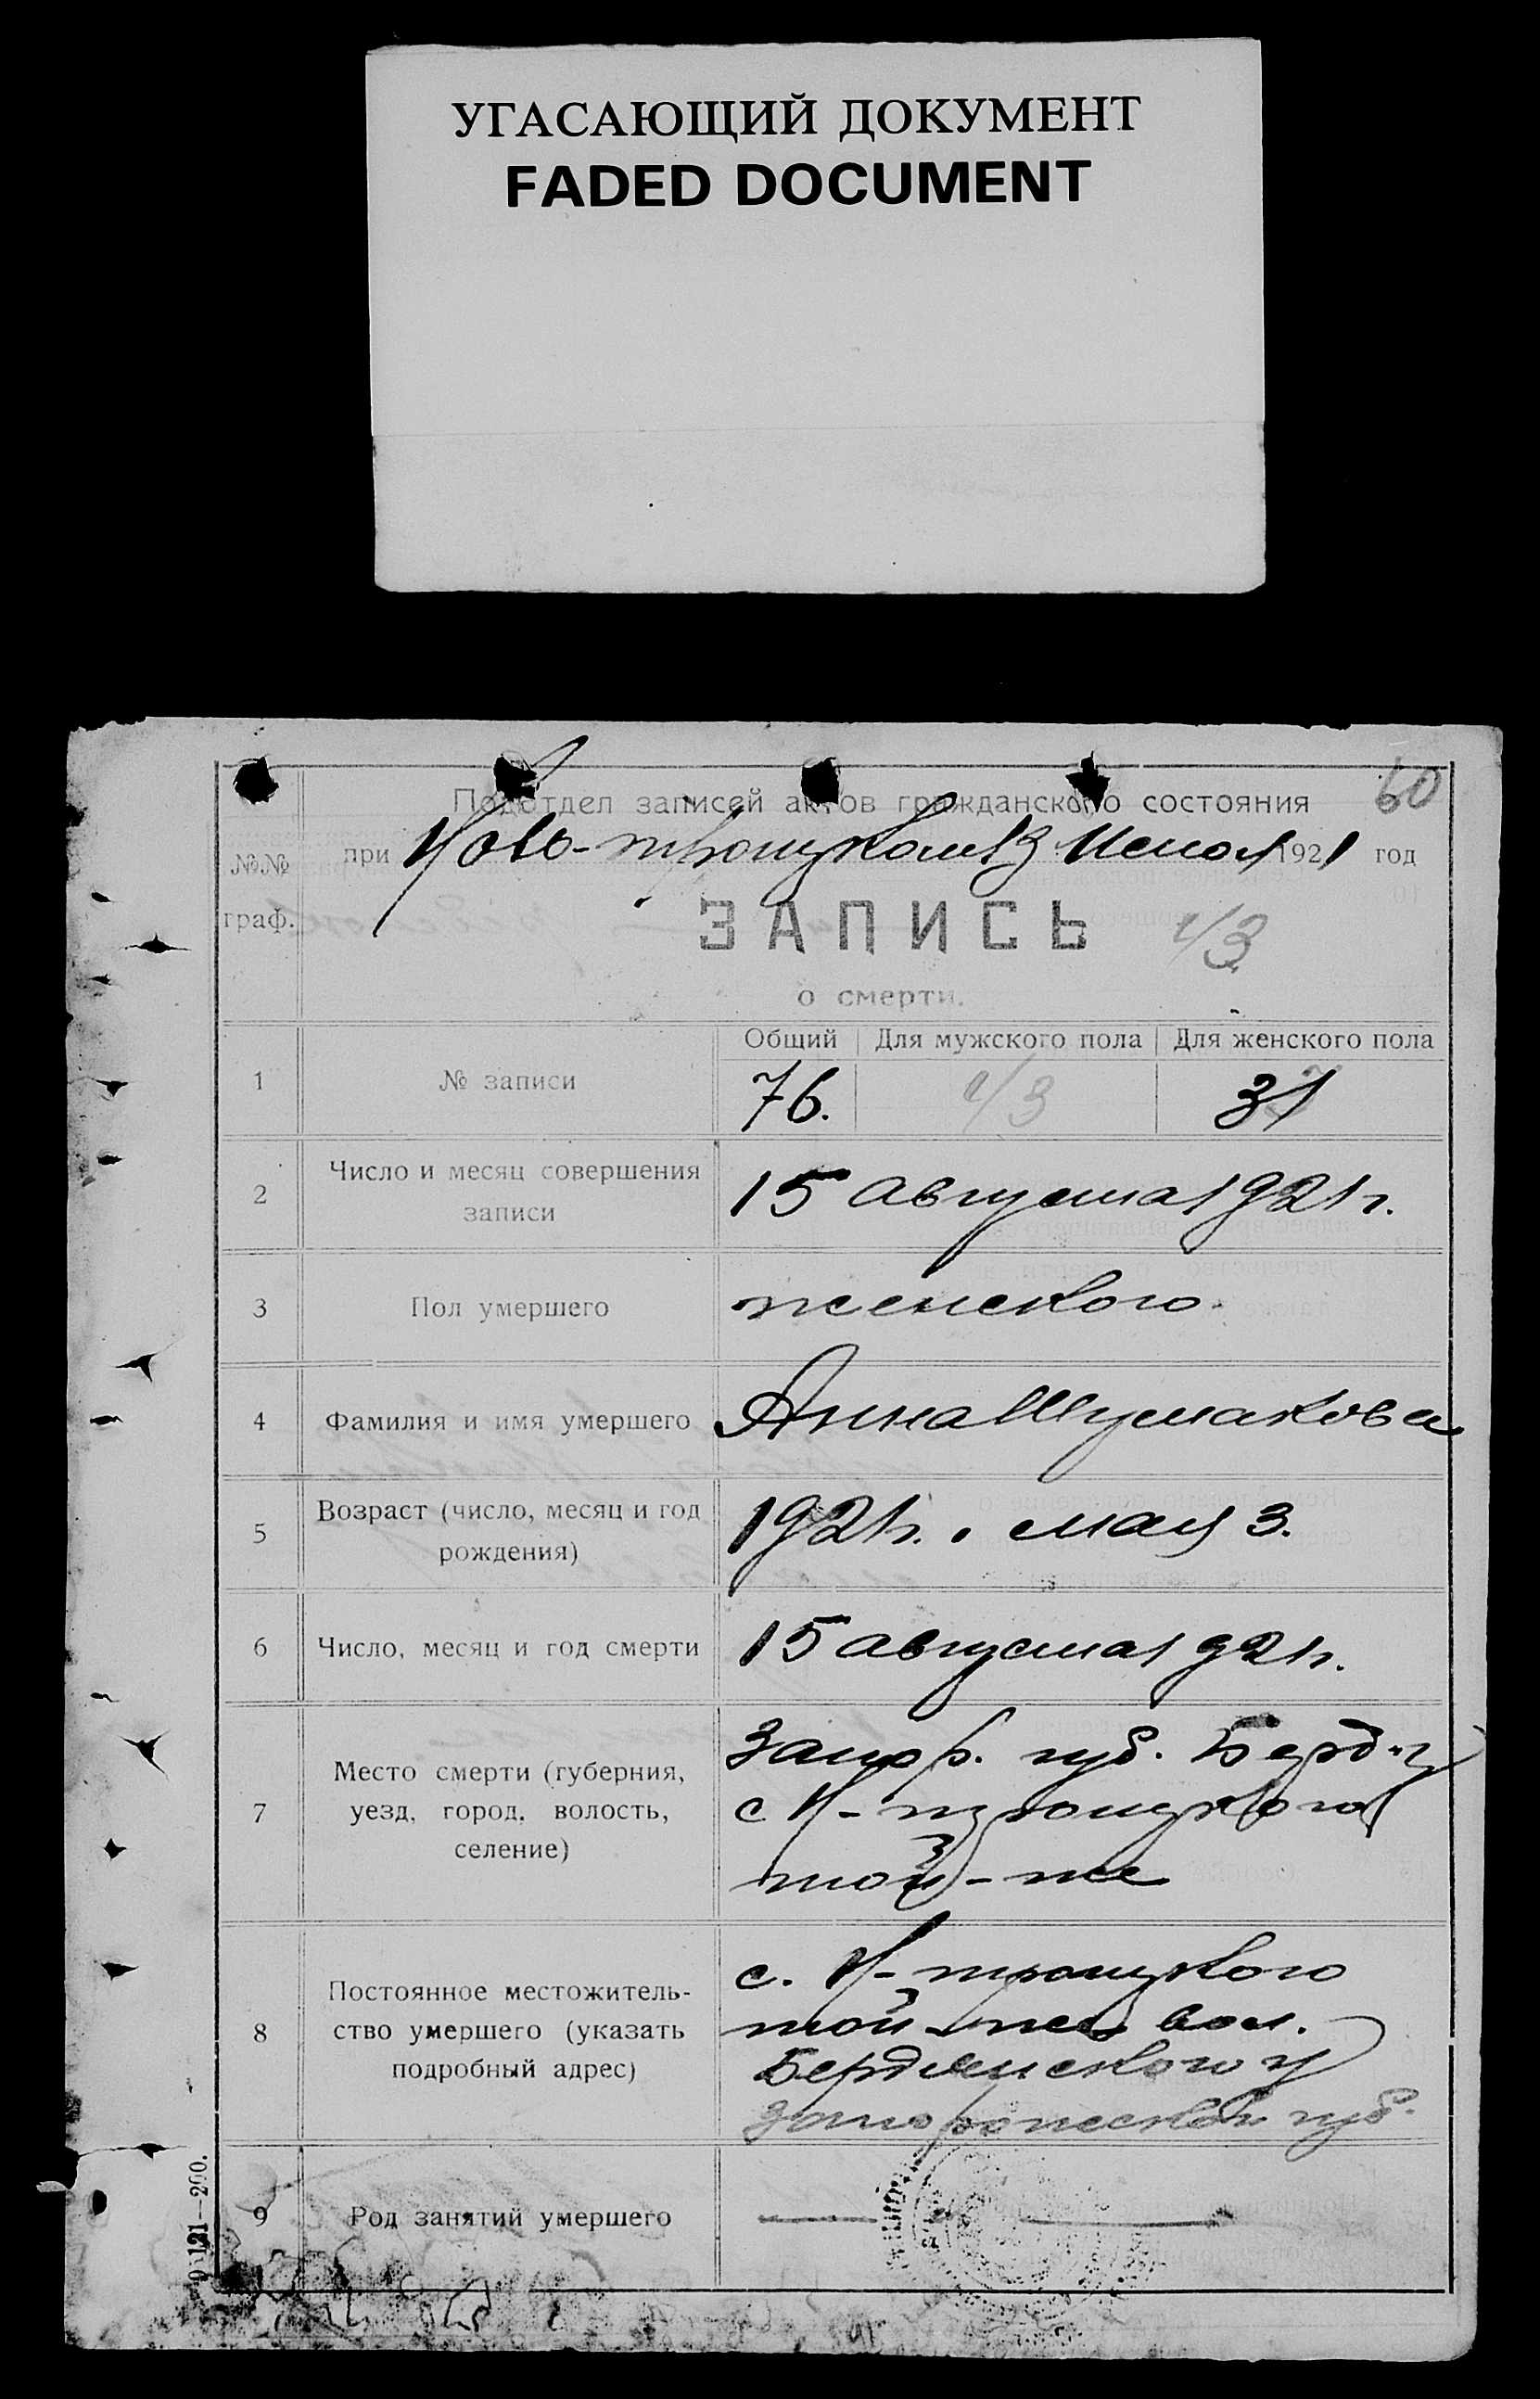 УГАСАЮЩИЙ ДОКУМЕНТ
FADED DOCUMENT
60
Подотдел записей актов гражданского состояния
№№ граф.
при Ново-троицком 1921 год
ЗАПИСЬ
43
о смерти.
Общий Для мужского пола Для женского пола
1 № записи 76. 43 31
2 Число и месяц совершения записи 15 августа 1921 г.
3 Пол умершего женского
4 Фамилия и имя умершего Анна Шумакова
5 Возраст (число, месяц и год рождения) 1921 г. мая 3.
6 Число, месяц и год смерти 15 августа 1921 г.
7 Место смерти (губерния, уезд, город, волость, селение)
Запор. губ. Берд. у
с Н-троицкого
той-же
8 Постоянное местожительство умершего (указать подробный адрес)
с. Н-троицкого
той-же вол.
Бердянского у
Запорожской губ.
9 Род занятий умершего —
121—200.